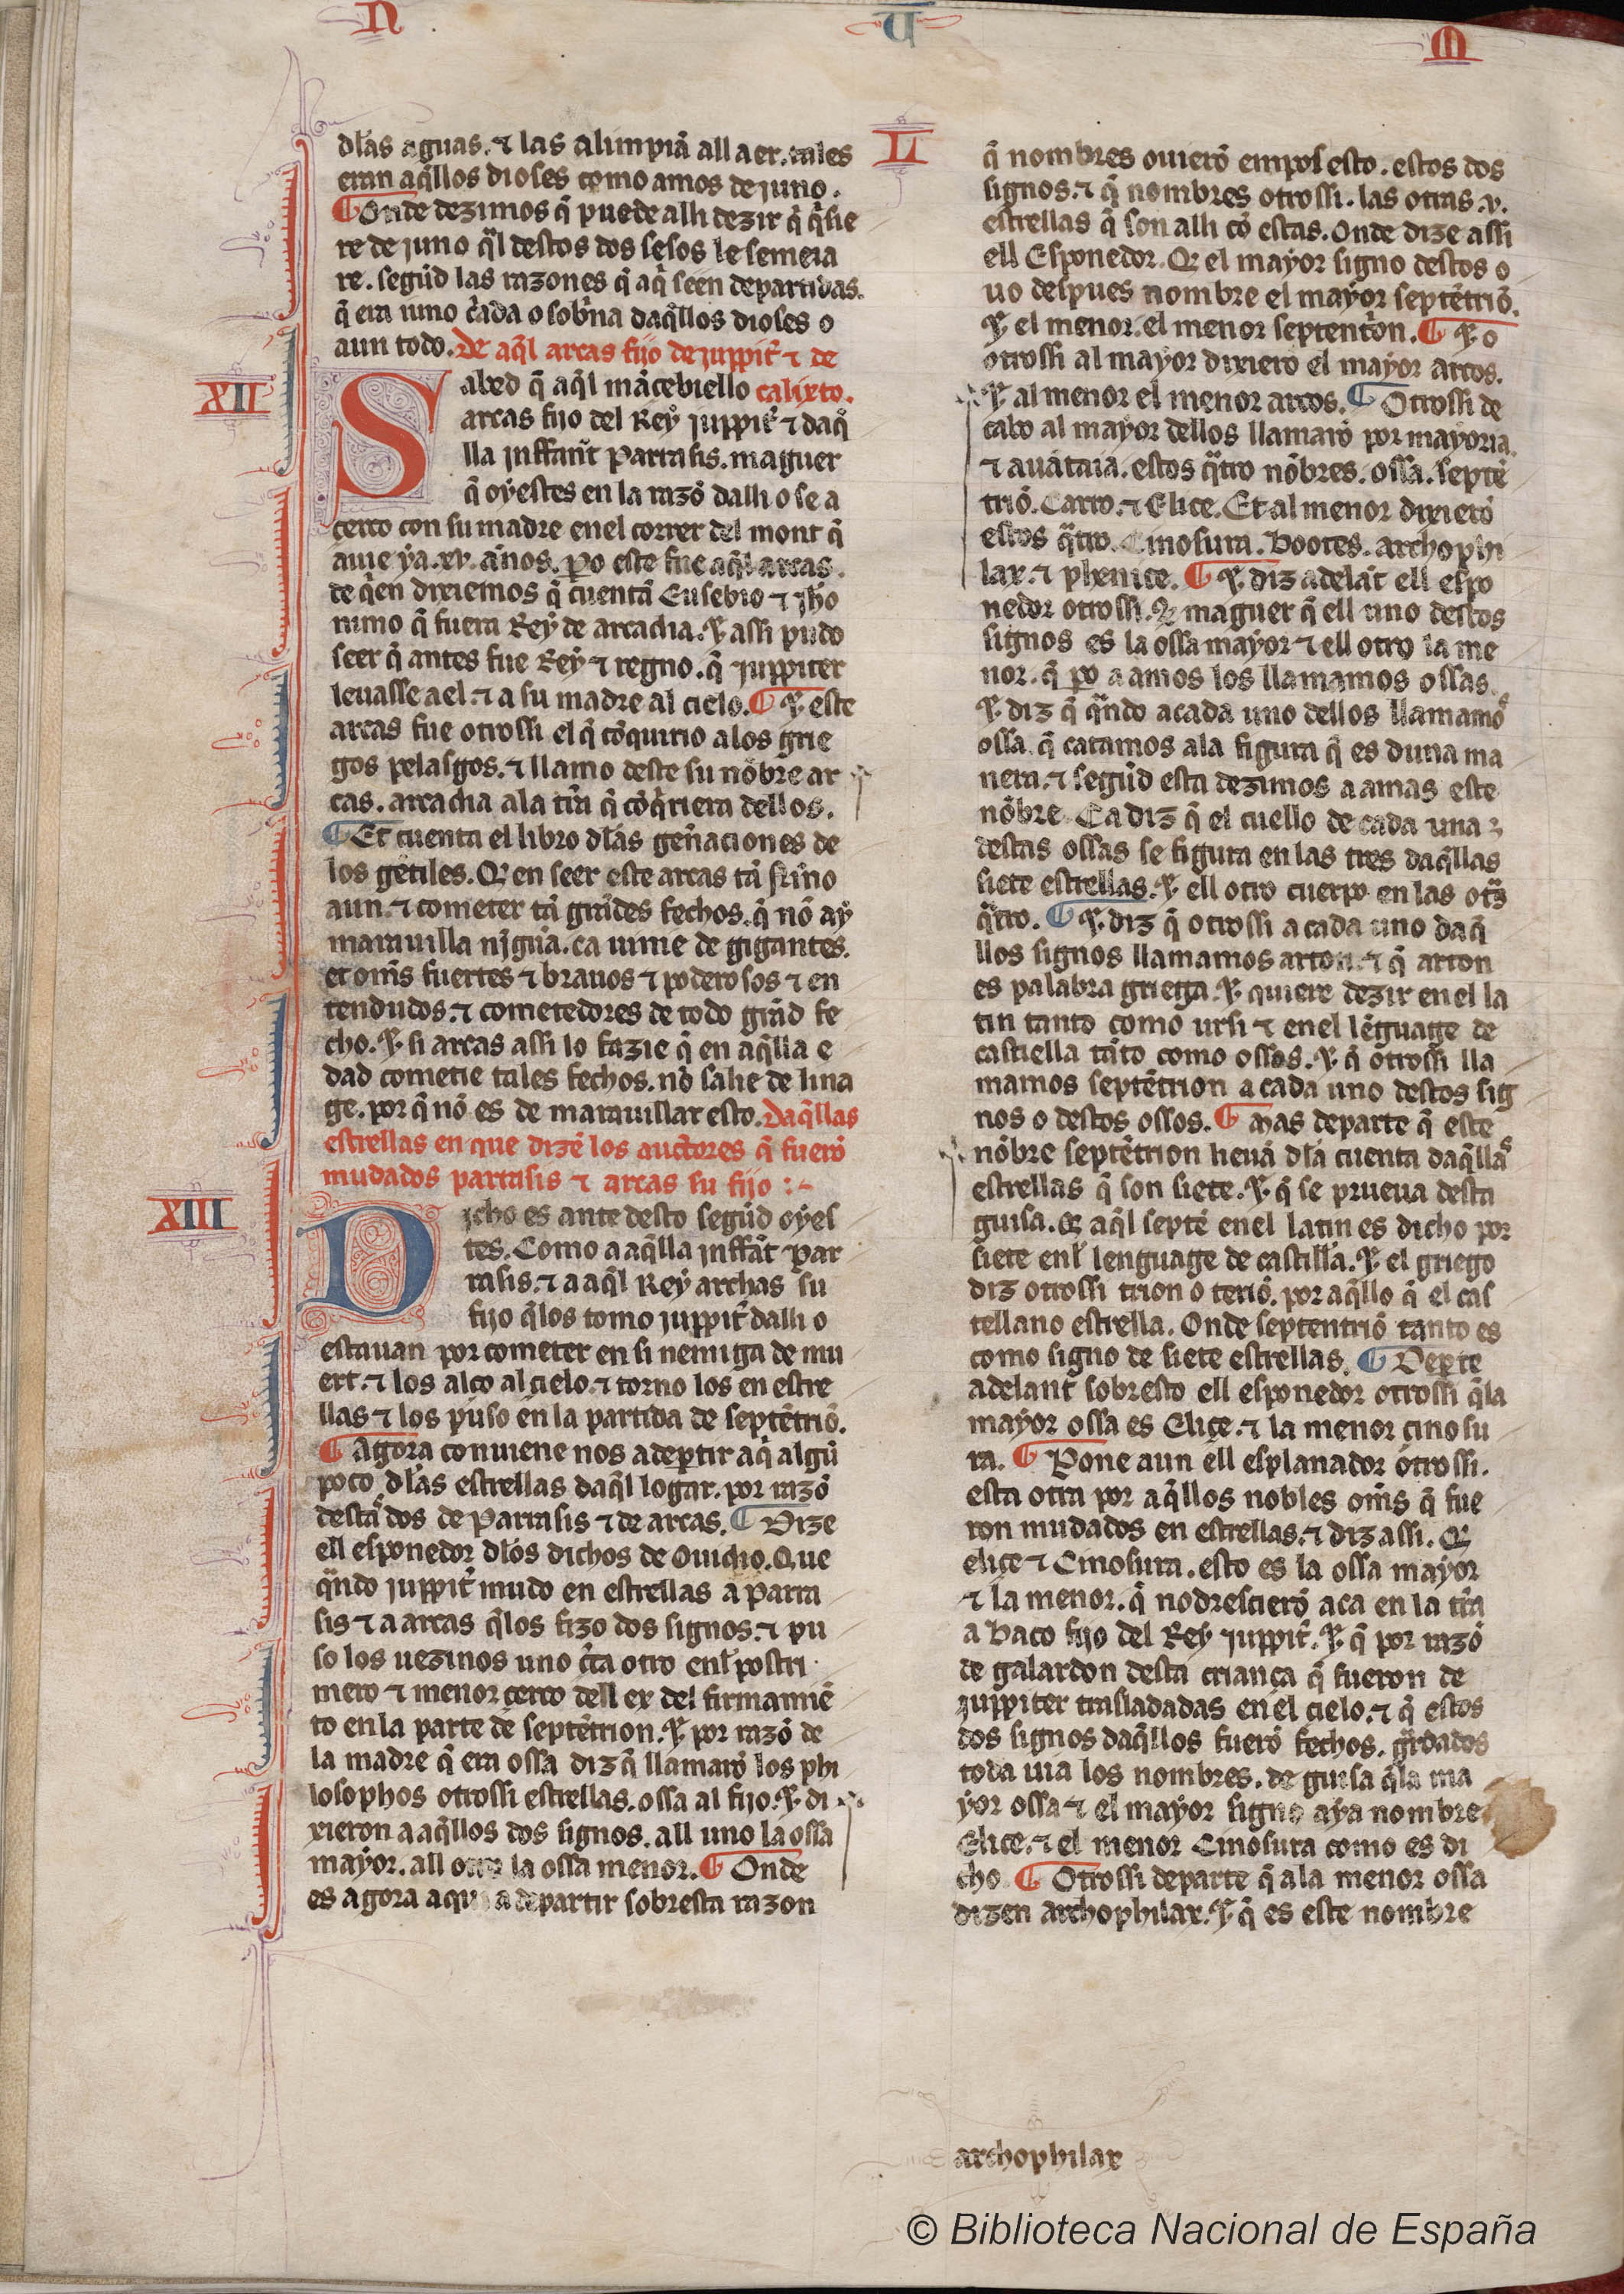 N U M
dłas aguas. ⁊ las alimpiã all aer. tales
eran aq̃llos dioses como amos de juno.
¶ Onde dezimos q̃ puede alli dezir q̃ q̃sie
re de juno q̃l destos dos sesos le semeia
re. segũd las razones q̃ aq̃ seen departidas.
q̃ era iuno c̃ada o sob̃na daq̃llos dioses o
aun todo. De aq̃l arcas fijo de juppit̃ ⁊ de
XII
Sabed q̃ aq̃l mãcebiello calixto.
arcas fijo del Rey juppit̃ ⁊ daq̃
lla jnffant̃ Parrasis. maguer
q̃ oyestes en la razõ dalli o se a
cerco con su madre en el correr del mont q̃
auie ya .xv. años. ꝑo este fue aq̃l arcas.
de q̃en dixiemos q̃ cuentã Eusebio ⁊ jho
nimo q̃ fuera Rey de arcadia. Ꝩ assi pudo
seer q̃ antes fue Rey ⁊ regno. q̃ juppiter
leuasse a el. ⁊ a su madre al cielo. ¶ Ꝩ este
arcas fue otrossi el q̃ cõquirio a los grie
gos pelasgos. ⁊ llamo deste su nõbre ar
cas. arcadia a la trr̃a q̃ cõq̃riera dellos.
¶ Et cuenta el libro dłas geñaciones de
los gẽtiles. Q̃ en seer este arcas tã
aun. ⁊ cometer tã grãdes fechos. q̃ nõ ay
marauilla nĩgua. ca uinie de gigantes.
et om̃s fuertes ⁊ brauos ⁊ poderosos ⁊ en
tendudos. ⁊ cometedores de todo grãd fe
cho. Ꝩ si arcas assi lo fazie q̃ en aq̃lla e
dad cometie tales fechos. nõ salie de lina
ge. por q̃ nõ es de marauillar esto. Daq̃llas
estrellas en que dizẽ los auctores q̃ fuerõ
mudados parrasis ⁊ arcas su fijo :~
XIII
Dicho es ante desto segũd oyes
tes. Como a aq̃lla jnffãt Par
rasis. ⁊ a aq̃l Rey archas su
fijo q̃los tomo juppit̃ dalli o
estauan por cometer en si nemiga de mu
ert. ⁊ los alço al cielo. ⁊ torno los en estre
llas ⁊ los puso en la partida de septẽtriõ.
¶ Agora conuiene nos a deꝑtir aq̃ algũ
poco dłas estrellas daq̃l logar. por razõ
destos dos de Parrasis ⁊ de arcas. ¶ Dize
ell esponedor dłos dichos de Ouidio. Que
q̃ndo juppit̃ mudo en estrellas a Parra
sis ⁊ a arcas q̃los fizo dos signos. ⁊ pu
so los uezinos uno c̃tra otro enł postri
mero ⁊ menor cerco dell ex del firmamiẽ
to en la parte de septẽtrion. Ꝩ por razõ de
la madre q̃ era ossa diz q̃ llamarõ los phi
losophos otrossi estrellas. ossa al fijo. Ꝩ di
xieron a aq̃llos dos signos. all uno la ossa
mayor. all otro la ossa menor. ¶ Onde
es agora aqui a departir sobresta razon
LI
q̃ nombres ouierõ empos esto. estos dos
signos. ⁊ q̃ nombres otrossi. las otras .v.
estrellas q̃ son alli cõ estas. Onde dize assi
ell Esponedor. Q̃ el mayor signo destos o
uo despues nombre el mayor septẽtriõ.
Ꝩ el menor. el menor septent̃on. ¶ Ꝩ o
otrossi al mayor dixierõ el mayor arcos.
Ꝩ al menor el menor arcos. ¶ Otrossi de
cabo al mayor dellos llamarõ por mayoria.
⁊ auãtaia. estos q̃tro nõbres. ossa. septẽ
triõ. Carro. ⁊ Elice. Et al menor dixierõ
estos q̃tro. Cinosura. Bootes. archophi
lax. ⁊ phenice. ¶ Ꝩ diz adelãt ell espo
nedor otrossi. Q̃ maguer q̃ ell uno destos
signos es la ossa mayor ⁊ ell otro la me
nor. q̃ ꝑo a amos los llamamos ossas.
Ꝩ diz q̃ q̃ndo a cada uno dellos llamamos
ossa. q̃ catamos a la figura q̃ es duna ma
nera. ⁊ segũd esta dezimos a amas este
nõbre. Ca diz q̃ el cuello de cada una
destas ossas se figura en las tres daq̃llas
siete estrellas. Ꝩ ell otro cuerpo en las ot̃s
q̃tro. ¶ Ꝩ diz q̃ otrossi a cada uno daq̃
llos signos llamamos arton. ⁊ q̃ arton
es palabra griega. Ꝩ quiere dezir en el la
tin tanto como ursi ⁊ en el lẽguage de
castiella tãto como ossos. Ꝩ q̃ otrossi lla
mamos septẽtrion a cada uno destos sig
nos o destos ossos. ¶ Mas departe q̃ este
nõbre septẽtrion lieuã dła cuenta daq̃llas
estrellas q̃ son siete. Ꝩ q̃ se prueua desta
guisa. Q̃ aq̃l septẽ en el latin es dicho por
siete enł lenguage de castilla. Ꝩ el griego
diz otrossi trion o teriõ. por aq̃llo q̃ el cas
tellano estrella. Onde septentriõ tanto es
como signo de siete estrellas. ¶ Deꝑte
adelant̃ sobresto ell esponedor otrossi q̃la
mayor ossa es Elice. ⁊ la menor cinosu
ra. ¶ Pone aun ell esplanador otrossi.
esta otra por aq̃llos nobles om̃s q̃ fue
ron mudados en estrellas. ⁊ diz assi. Q̃
elice ⁊ Cinosura. esto es la ossa mayor
⁊ la menor. q̃ nodrescierõ aca en la trr̃a
a Baco fijo del Rey juppit̃. Ꝩ q̃ por razõ
de galardon desta criança q̃ fueron de
juppiter trasladadas en el cielo. ⁊ q̃ estos
dos signos daq̃llos fuerõ fechos. g̃rdados
toda uia los nombres. de guisa q̃la ma
yor ossa ⁊ el mayor signo aya nombre
Elice. ⁊ el menor Cinosura como es di
cho. ¶ Otrossi departe q̃ a la menor ossa
dizen archophilax. Ꝩ q̃ es este nombre
archophilax
© Biblioteca Nacional de España